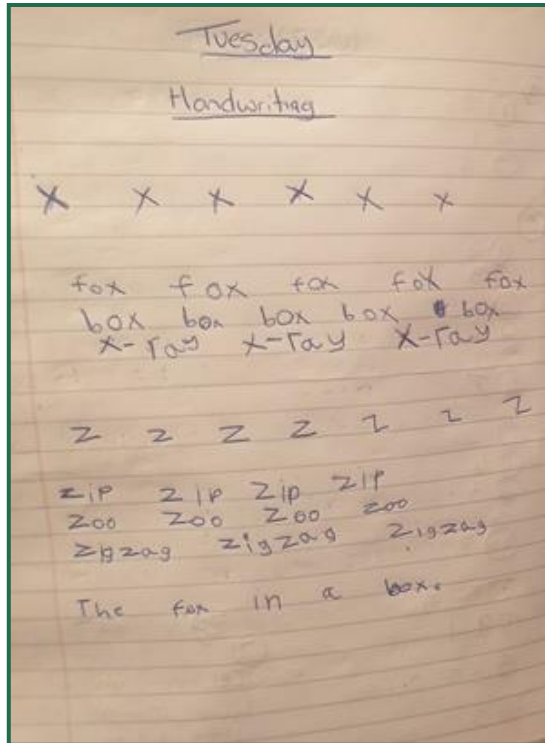 Tuesday
Handwriting
x x x x x x
fox fox fox fox fox
box box box box box
x-ray x-ray x-ray
z z z z z z z
zip zip zip zip
zoo zoo zoo zoo
zigzag zigzag zigzag
The fox in a box.